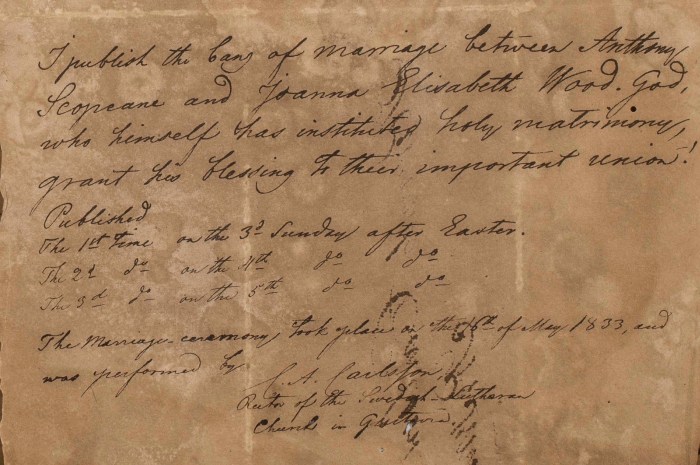 I publish the bans of marriage between Anthony
Scopeane and Joanna Elisabeth Wood. God,
who himself has instituted holy matrimony,
grant his blessing to their important union!
Published
The 1st time on the 3d Sunday after Easter.
The 2d do on the 4th do do
The 3d do on the 5th do do
The Marriage-ceremony took place on the of May 1833, and
was performed by
C. A. Carlsson,
Rector of the Swedish-Lutheran
Church in